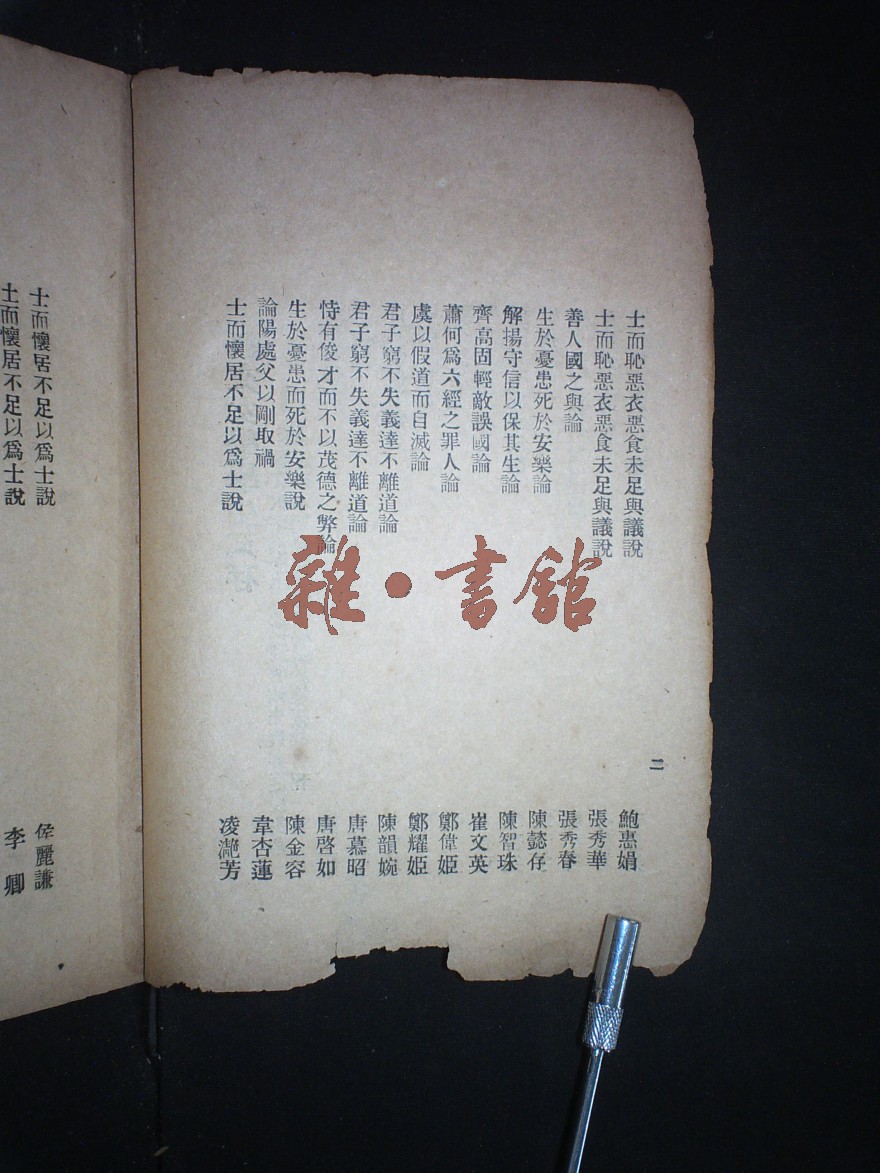 士而恥惡衣惡食未足與議說 鮑惠娟
士而恥惡衣惡食未足與議說 張秀華
善人國之與論 張秀春
生於憂患死於安樂論 陳懿存
解揚守信以保其生論 陳智珠
齊高固輕敵誤國論 崔文英
蕭何爲六經之罪人論 鄭偉姬
虞以假道而自滅論 鄭耀姬
君子窮不失義達不離道論 陳韻婉
君子窮不失義達不離道論 唐慕昭
恃有俊才而不以茂德之弊論 唐啓如
生於憂患而死於安樂說 陳金容
論陽處父以剛取禍 韋杏蓮
士而懷居不足以爲士說
二
雜·書館
士而懷居不足以爲士說 侯麗謙
士而懷居不足以爲士說 李卿